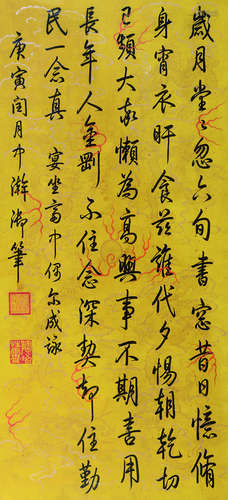 歲月堂〻忽六旬書窓昔日憶脩
身宵衣旰食茲誰代夕惕朝乾切
己頻大懶為高興事不期喜用
長年人金剛不住念深契即住勤
民一念真 宴坐齋中偶尔成詠
庚寅閏月中澣御筆